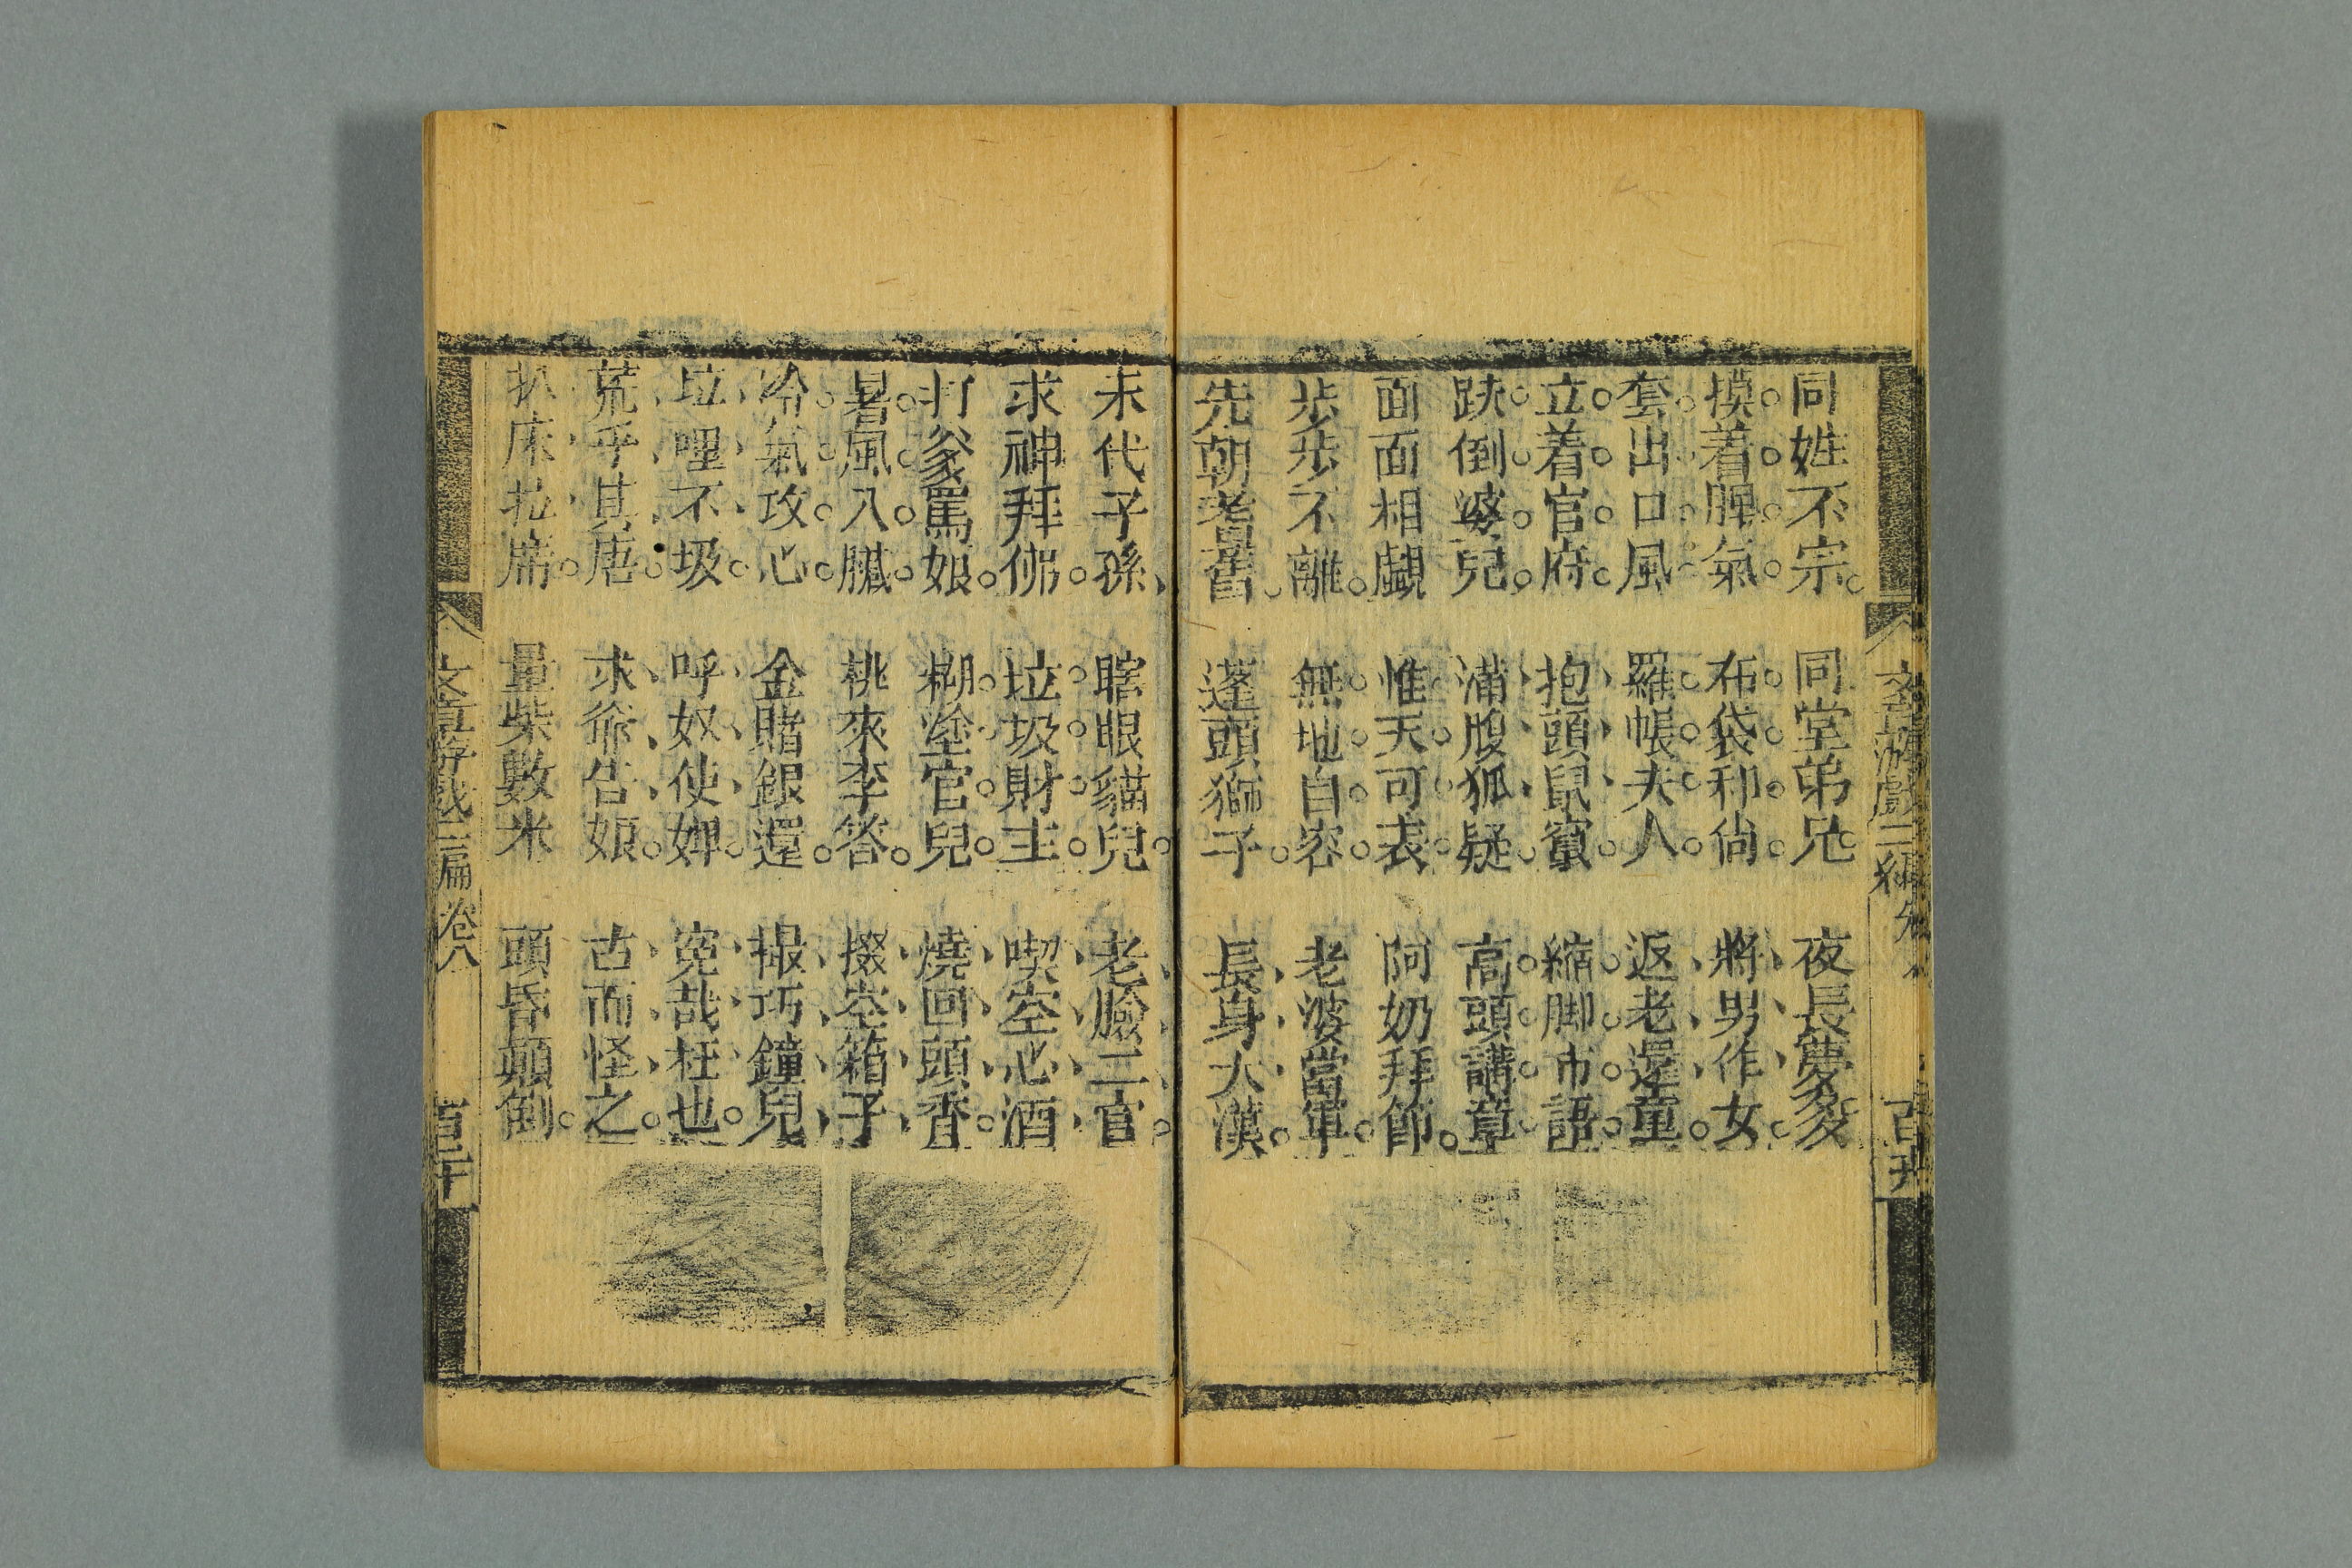 同姓不宗。同堂弟兄。夜長夢多
摸着脾氣。布袋和尙。將男作女。
套出口風。羅帳夫人。返老還童。
立着官府。抱頭鼠竄。縮脚市語。
跌倒婆兒。滿腹狐疑。高頭講章。
面面相覷 惟天可表。阿奶拜節。
步步不離。無地自容。老婆當軍。
先朝耆舊。蓬頭獅子。長身大漢。
末代子孫、瞎眼貓兒。老臉三官。
求神拜佛。垃圾財主。喫空心酒
打爹罵娘。糊塗官兒。燒回頭香。
暑風入臟。桃來李答。掇空箱子
冷氣攻心。金賭銀還。撮巧鐘兒
垃哩不圾。呼奴使婢。寃哉枉也。
荒乎其唐。求爺告娘。古而怪之。
扒床拉席。量柴數米 頭昏顛倒。
文章游戲三編 卷八 百三十